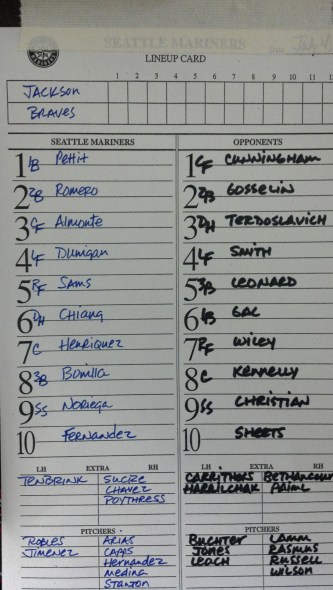 SEATTLE MARINERS
LINEUP CARD
1 2 3 4 5 6 7 8 9 10 11 12
JACKSON
BRAVES
SEATTLE MARINERS
1 1B Pettit
2 2B Romero
3 CF Almonte
4 LF Dunigan
5 RF Sams
6 DH Chiang
7 C Henriquez
8 3B Bonilla
9 SS Noriega
10 Fernandez
LH EXTRA RH
TENBRINK SUCRE
CHAVEZ
POYTHRESS
PITCHERS
ROBLES ARIAS
Jimenez CAPPS
Hernandez
Medina
Stanton
OPPONENTS
1 CF CUNNINGHAM
2 2B GOSSELIN
3 DH TERDOSLAVICH
4 LF SMITH
5 3B LEONARD
6 1B GAC
7 RF WILEY
8 C KENNELLY
9 SS CHRISTIAN
10 SHEETS
LH EXTRA RH
CARRITHERS BETHANCOURT
HARRILCHAK
PITCHERS
BUCHTER LAMM
JONES RASMUS
LEACH RUSSELL
WILSON